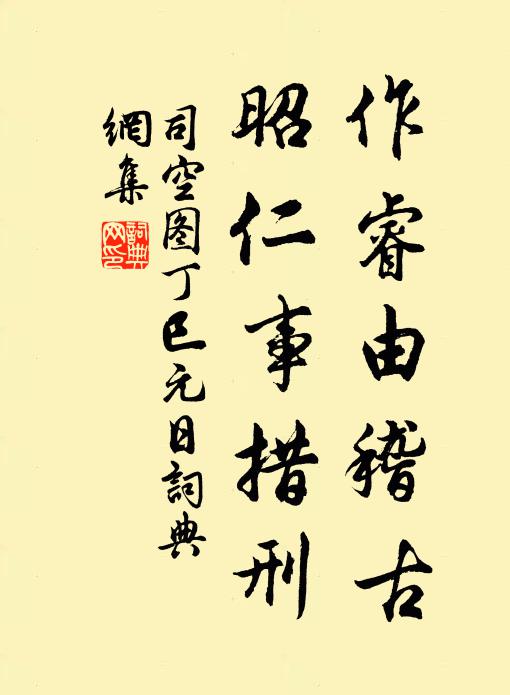 作睿由稽古
昭仁事措刑
司空图丁巳元日詞典
網集
詞典
网印